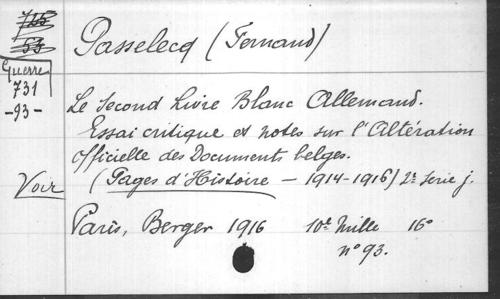 725
53
Guerre
731
-93-
Passelecq (Fernand)
Le Second Livre Blanc Allemand.
Essai critique et notes sur l'Altération
Officielle des Documents belges.
Voir (Pages d'Histoire - 1914-1916) 2e Serie j.
Paris, Berger 1916 10e Mille 16°
n° 93.